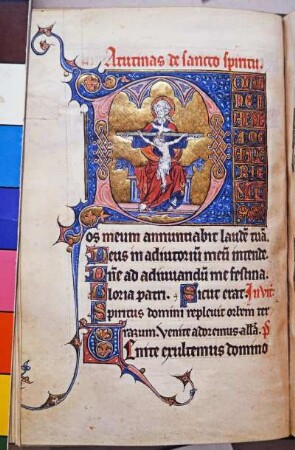 Matutinas de sancto spiritu.
DOMINE
os meum annunciabit laudem tuā.
Deus in adiutoriū meū intende.
Dn̄e ad adiuuandū me festina.
Gloria patri. Sicut erat. Inuit.
Spiritus domini repleuit orbem ter
rarum. Venite adoremus all'a. p̄s
Uenite exultemus domino